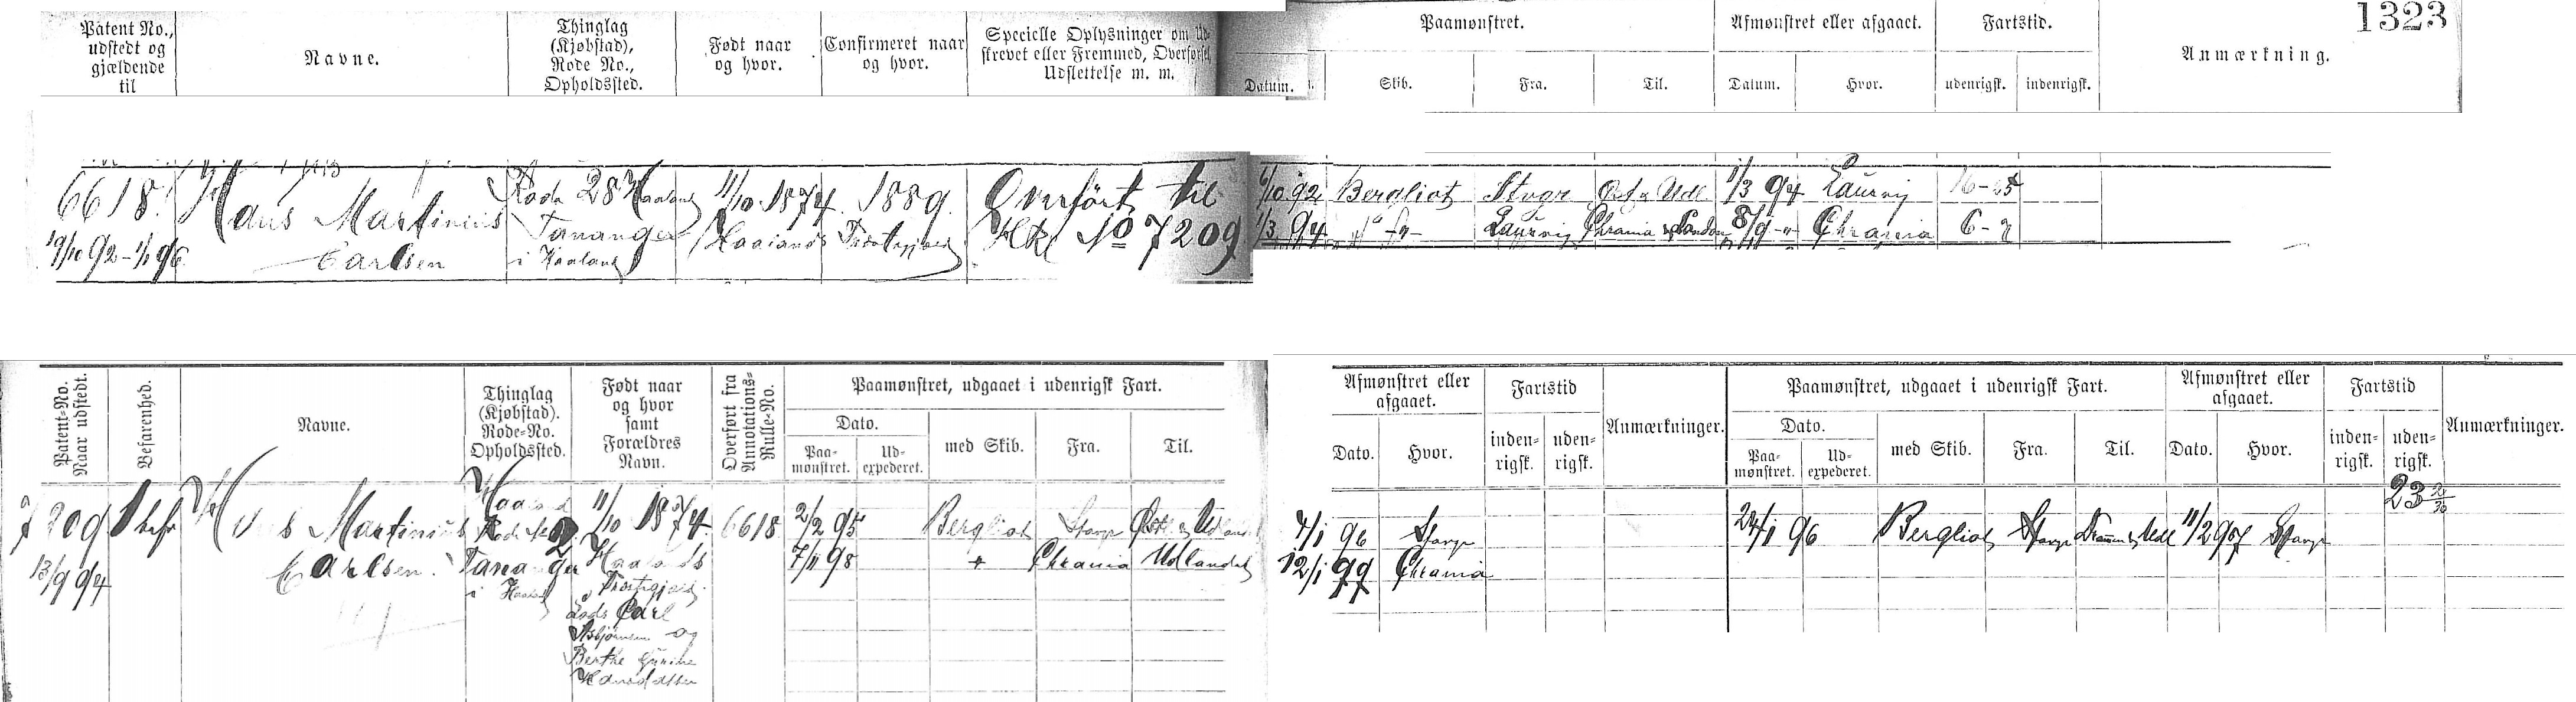 1323
Patent No., udstedt og gjældende til
Navne.
Thinglag (Kjøbstad), Rode No., Opholdssted.
Født naar og hvor.
Confirmeret naar og hvor.
Specielle Oplysninger om Ud-
skrevet eller Fremmed, Overførsel,
Udslettelse m. m.
Paamønstret.
Datum.
Skib.
Fra.
Til.
Afmønstret eller afgaaet.
Datum.
Hvor.
Fartstid.
udenrigsk.
indenrigsk.
Anmærkning.
6618.
19/10 92 - 1/1 96
Hans Martinius
Carlsen
Rode 28 Haaland
Tananger
i Haaland
11/10 1874.
Haalands
1889.
Præstegjeld
Overført til
No 7209
6/10 92 Bergliot Stvgr 1/3 94 Laurvig 16-25
1/3 94 -"- Laurvig Chrania London 8/9 -"- Chrania 6-7
Patent-No. Naar udstedt.
Befarenhed.
Navne.
Thinglag (Kjøbstad). Rode-No. Opholdssted.
Født naar og hvor samt Forældres Navn.
Overført fra Annotations-Rulle-No.
Paamønstret, udgaaet i udenrigsk Fart.
Dato.
Paa-mønstret.
Ud-expederet.
med Skib.
Fra.
Til.
Afmønstret eller afgaaet.
Dato.
Hvor.
Fartstid
inden-rigsk.
uden-rigsk.
Anmærkninger.
Paamønstret, udgaaet i udenrigsk Fart.
Dato.
Paa-mønstret.
Ud-expederet.
med Skib.
Fra.
Til.
Afmønstret eller afgaaet.
Dato.
Hvor.
Fartstid
inden-rigsk.
uden-rigsk.
Anmærkninger.
7209
13/9 94
1 befr
Hans Martinius
Carlsen.
Haaland
Rode
Tananger
i Haaland
11/10 1874.
Haalands
Præstegjeld.
Lods Carl
Asbjørnsen og
Berthe Gurine
6618
2/2 95 Bergliot Stavgr
7/11 98 Chrania Udlandet
7/1 96 Stavgr
12/1 99 Chrania
24/1 96 Bergliot Stavgr 11/2 97 Stavgr
23